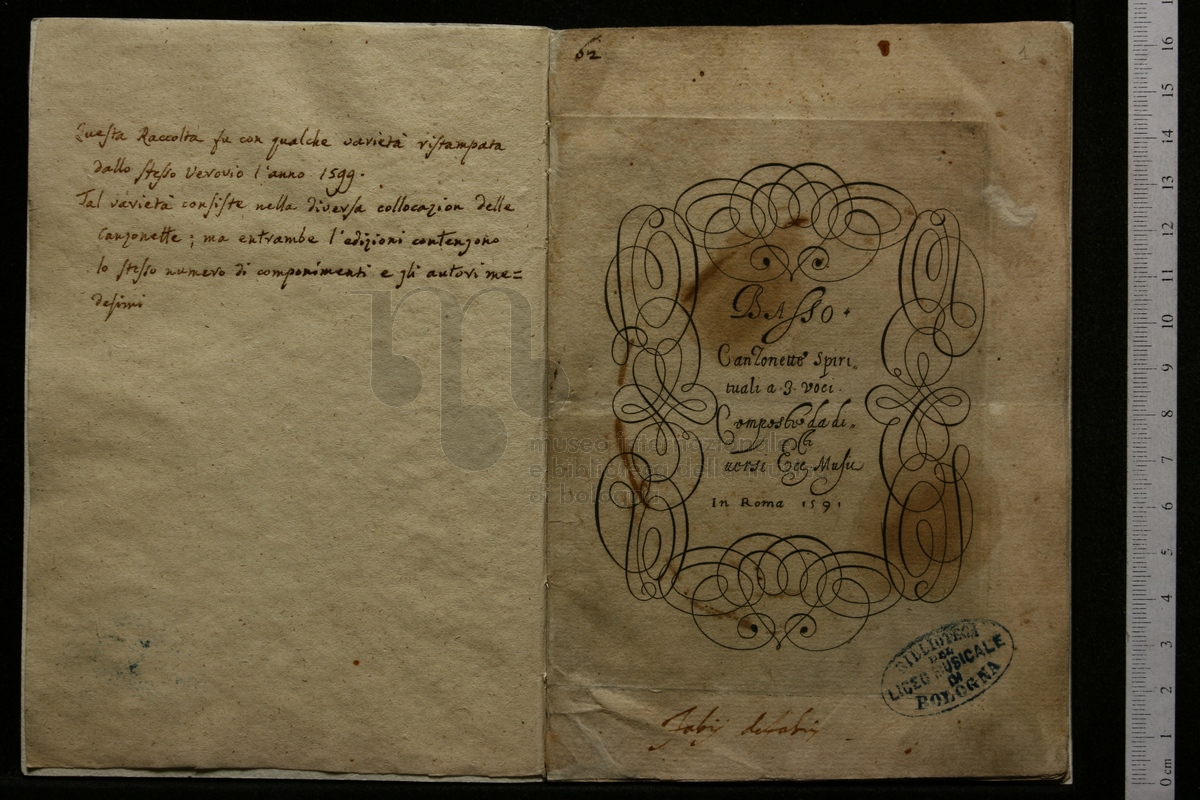 Questa Raccolta fu con qualche varietà ristampata
dallo stesso Verovio l'anno 1599.
Tal varietà consiste nella diversa collocazion delle
Canzonette; ma entrambe l'edizioni contengono
lo stesso numero di componimenti e gli autori me=
desimi
62
1
BASSO.
Canzonette Spiri„
tuali a .3. voci.
Composte da di„
uersi Ecc.ti Musici
In Roma 1591
BIBLIOTECA
DEL
LICEO MUSICALE
DI
BOLOGNA
museo internazionale
e biblioteca della musica
di bologna
16
15
14
13
12
11
10
9
8
7
6
5
4
3
2
1
0 cm